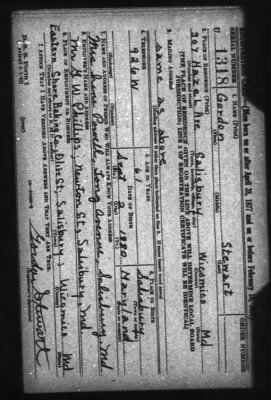 (Men born on or after April 28, 1877 and on or before February 16,
SERIAL NUMBER
1. NAME (Print)
ORDER NUMBER
U 1315
Gordon
Stewart
(First)
(Last)
2. PLACE OF RESIDENCE (Print)
307 Hazel Ave Salisbury Wicomico Md
[THE PLACE OF RESIDENCE GIVEN ON THE LINE ABOVE WILL DETERMINE LOCAL BOARD
JURISDICTION; LINE 2 OF REGISTRATION CERTIFICATE WILL BE IDENTICAL]
3. MAILING ADDRESS
same as above
4. TELEPHONE
5. AGE IN YEARS
6. PLACE OF BIRTH
926W
61
Salisbury
DATE OF BIRTH
Sept 2 1880
Maryland
7. NAME AND ADDRESS OF PERSON WHO WILL ALWAYS KNOW YOUR ADDRESS
Mrs. Powell, Long Avenue, Salisbury Md
8. EMPLOYER'S NAME AND ADDRESS
Mr G W Phillips, Newton St, Salisbury, Md
9. PLACE OF EMPLOYMENT OR BUSINESS
Eastern Shore Baking Co, Div St, Salisbury, Wicomico Md
I AFFIRM THAT I HAVE VERIFIED ABOVE ANSWERS AND THAT THEY ARE TRUE.
D. S. S. Form 1
Gordon Stewart